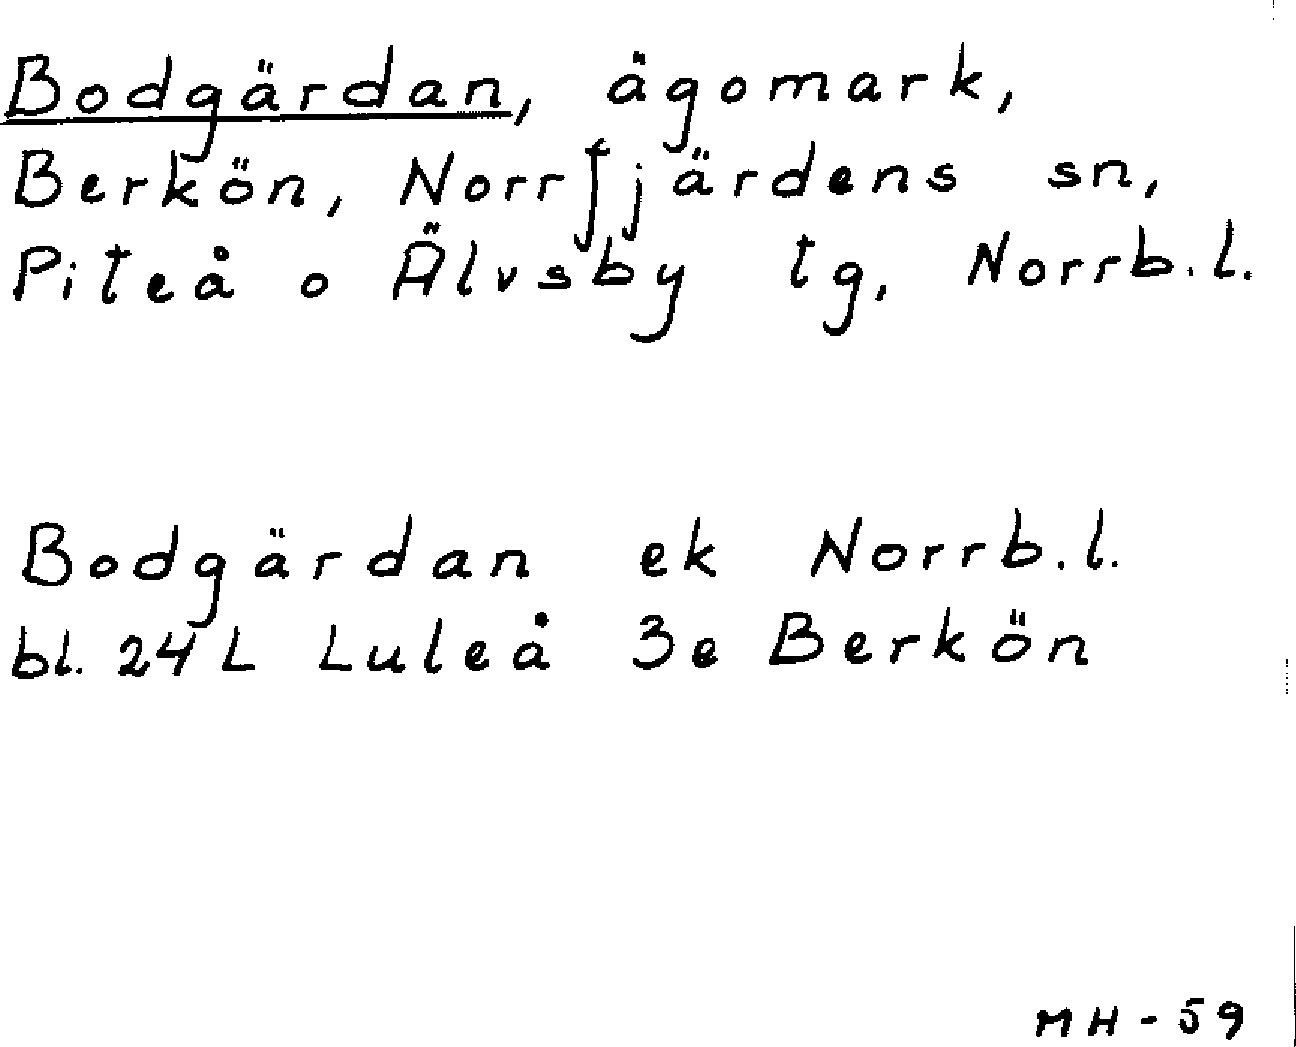 Bodgärdan, ägomark,
Berkön, Norrfjärdens sn,
Piteå o Älvsby tg, Norrb.l.
Bodgärdan ek Norrb.l.
bl. 24 L Luleå 3e Berkön
MH-59